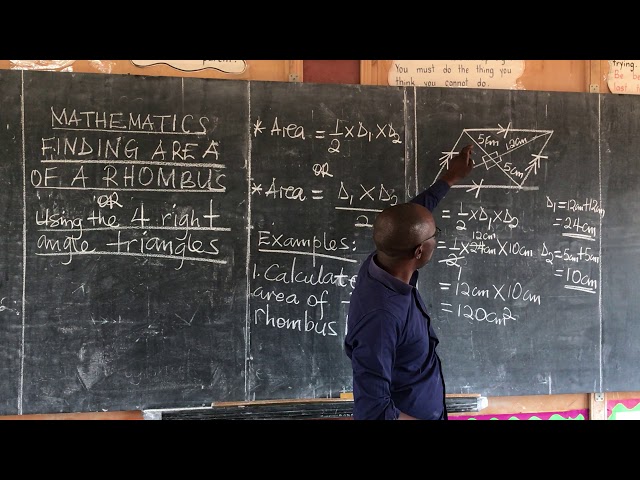 You must do the thing you
think you cannot do.
trying.
Be
last
MATHEMATICS
FINDING AREA
OF A RHOMBUS
OR
Using the 4 right
angle triangles
* Area = 1/2 x D1 x D2
OR
* Area = D1 x D2
2
Examples:
1. Calculate
area of
rhombus
5cm 12cm
5cm
= 1/2 x D1 x D2
12cm
= 1/2 x 24cm x 10cm
= 12cm x 10cm
= 120cm²
D1 = 12cm+12cm
= 24cm
D2 = 5cm+5cm
= 10cm